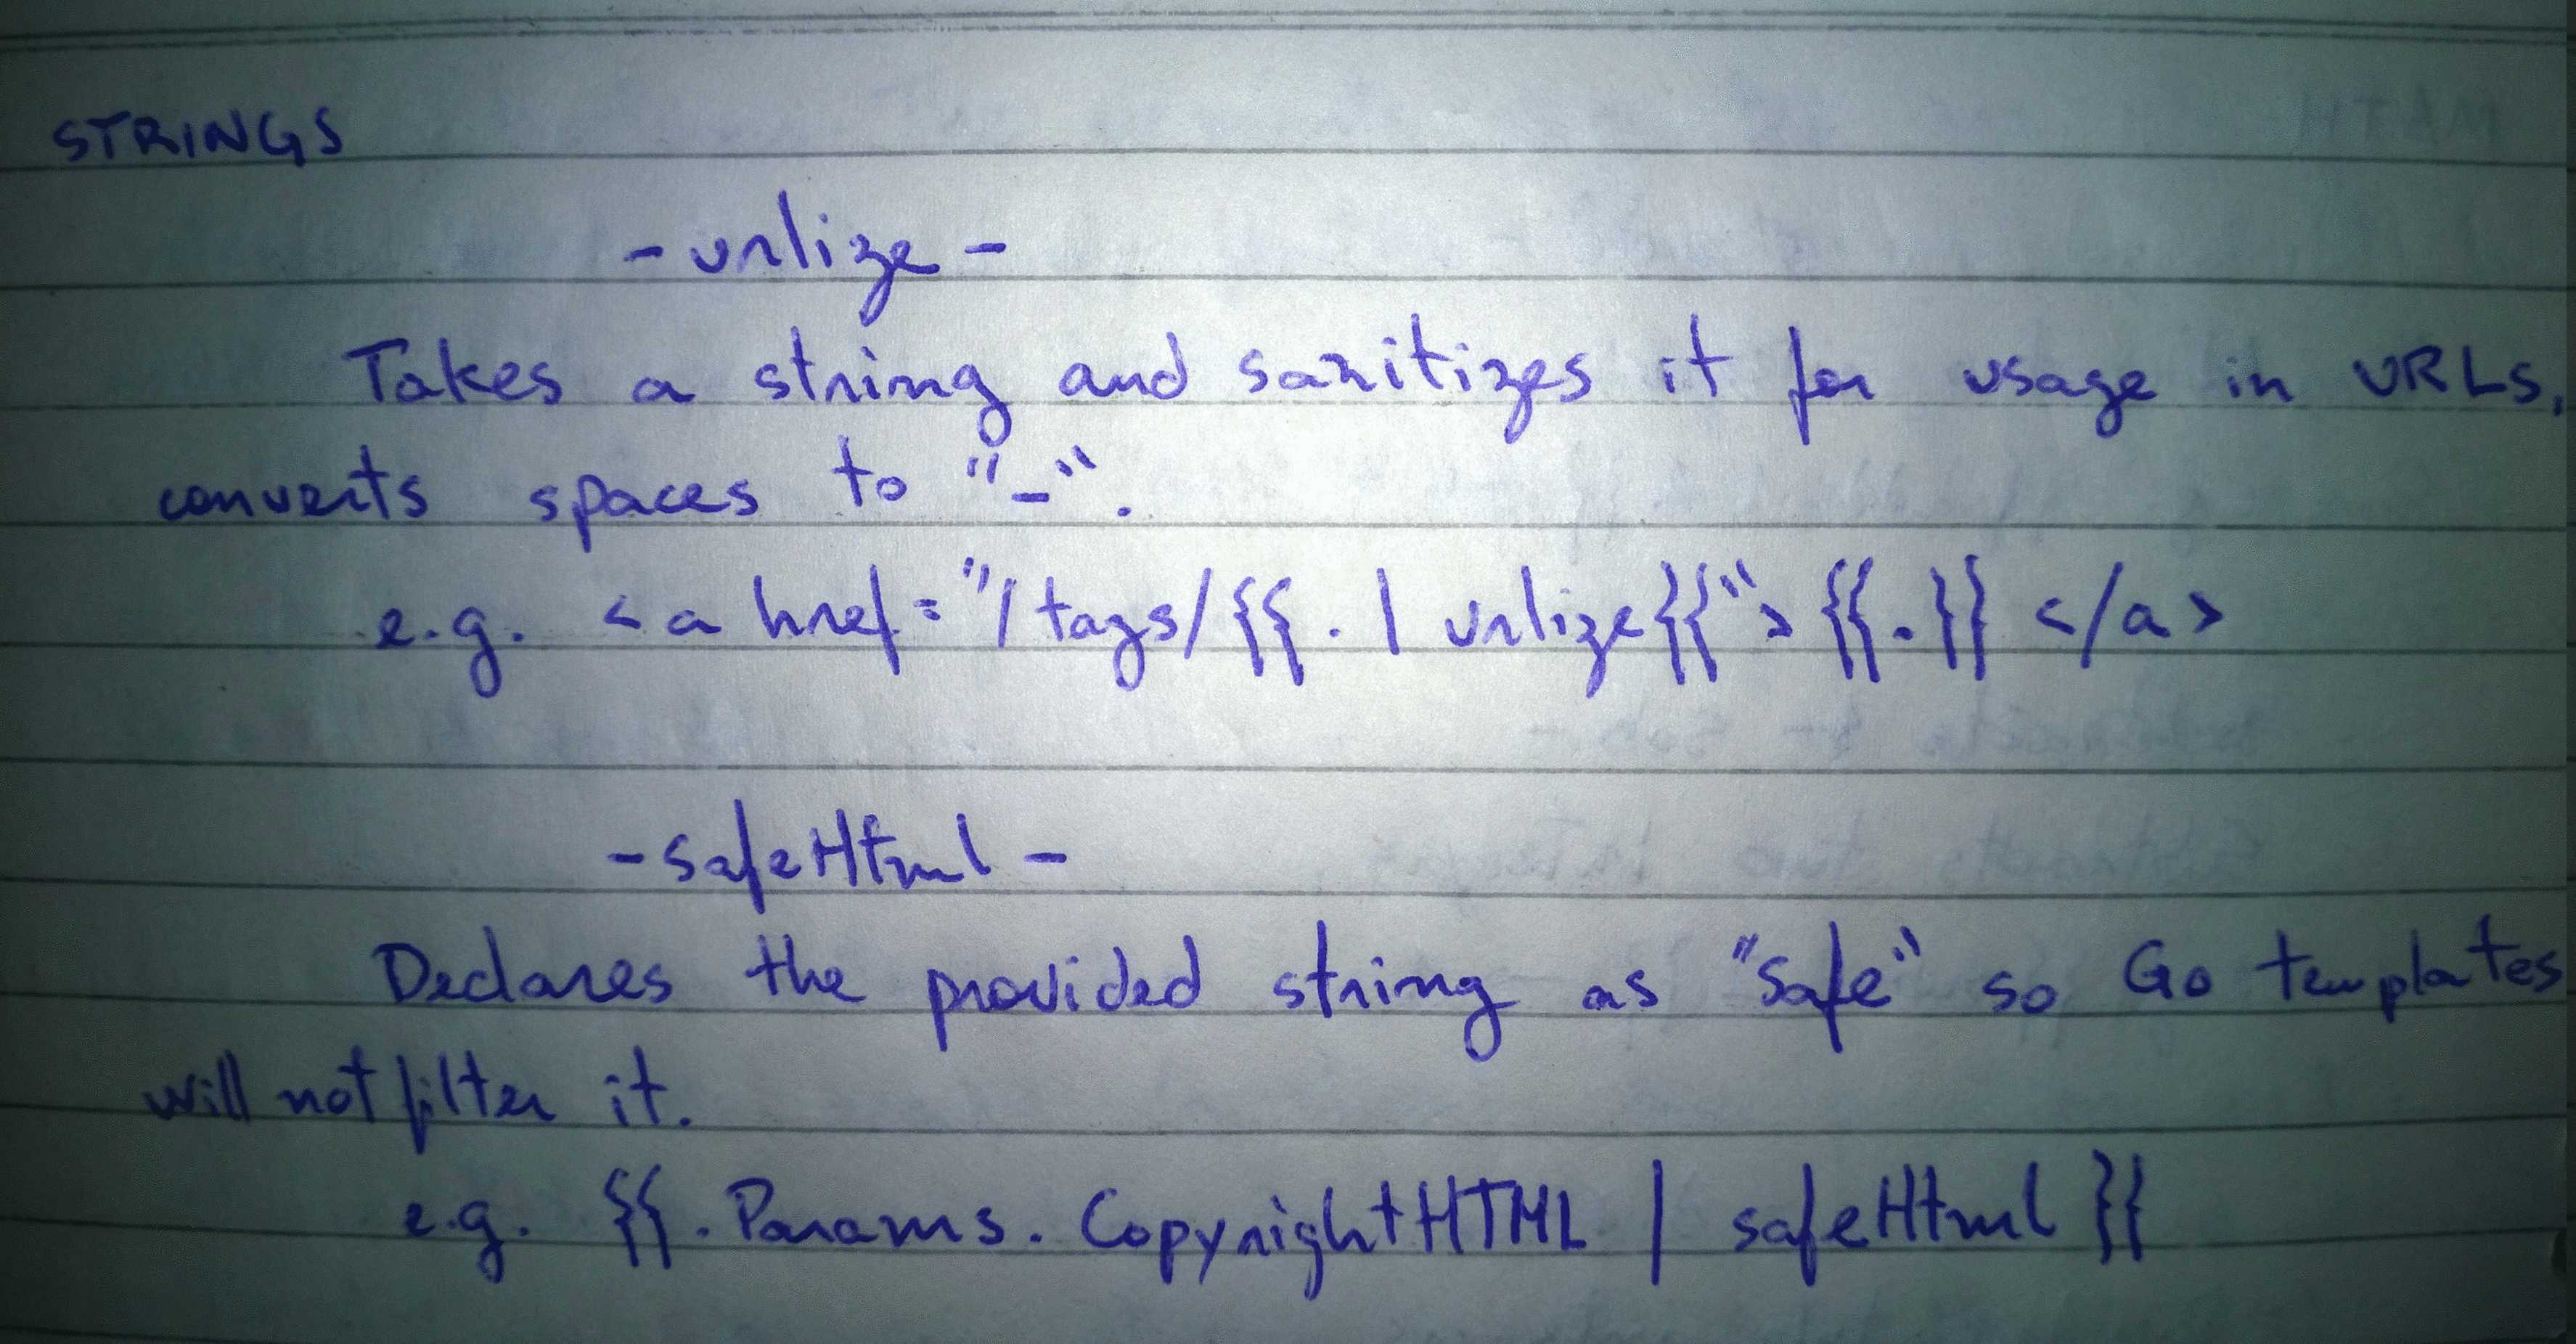 STRINGS
- urlize -
Takes a string and sanitizes it for usage in URLs,
converts spaces to "-".
e.g. <a href="/tags/{{. | urlize}}">{{.}}</a>
- safeHtml -
Declares the provided string as "safe" so Go templates
will not filter it.
e.g. {{.Params.CopyrightHTML | safeHtml}}